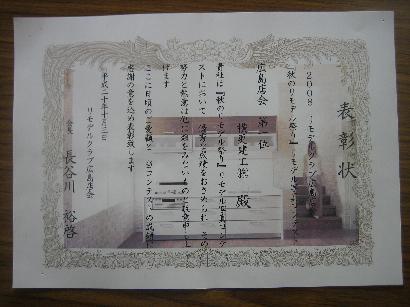 表彰状
2008 リモデルクラブ広島店会
『秋のリモデル祭り』リモデル
広島店会 第一位
建工 殿
貴社は『秋のリモデル祭り』リモデル
ストにおいて 優秀な成績をおさめられ その
努力と熱意は他に類をみないものと敬意を
げます
ここに日頃のご愛顧と 当コンテストの成績に
感謝の意を込め表彰致します
平成二十年十月三日
リモデルクラブ広島店会
会長 長谷川 裕啓